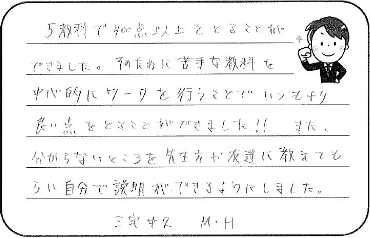 5教科で400点以上をとることが
できました。そのために苦手な教科を
中心的にワークを行うことでいつもより
良い点をとることができました!! また、
分からないところを先生方や友達に教えても
らい自分で説明ができるようにしました。
三宅中2 M・H